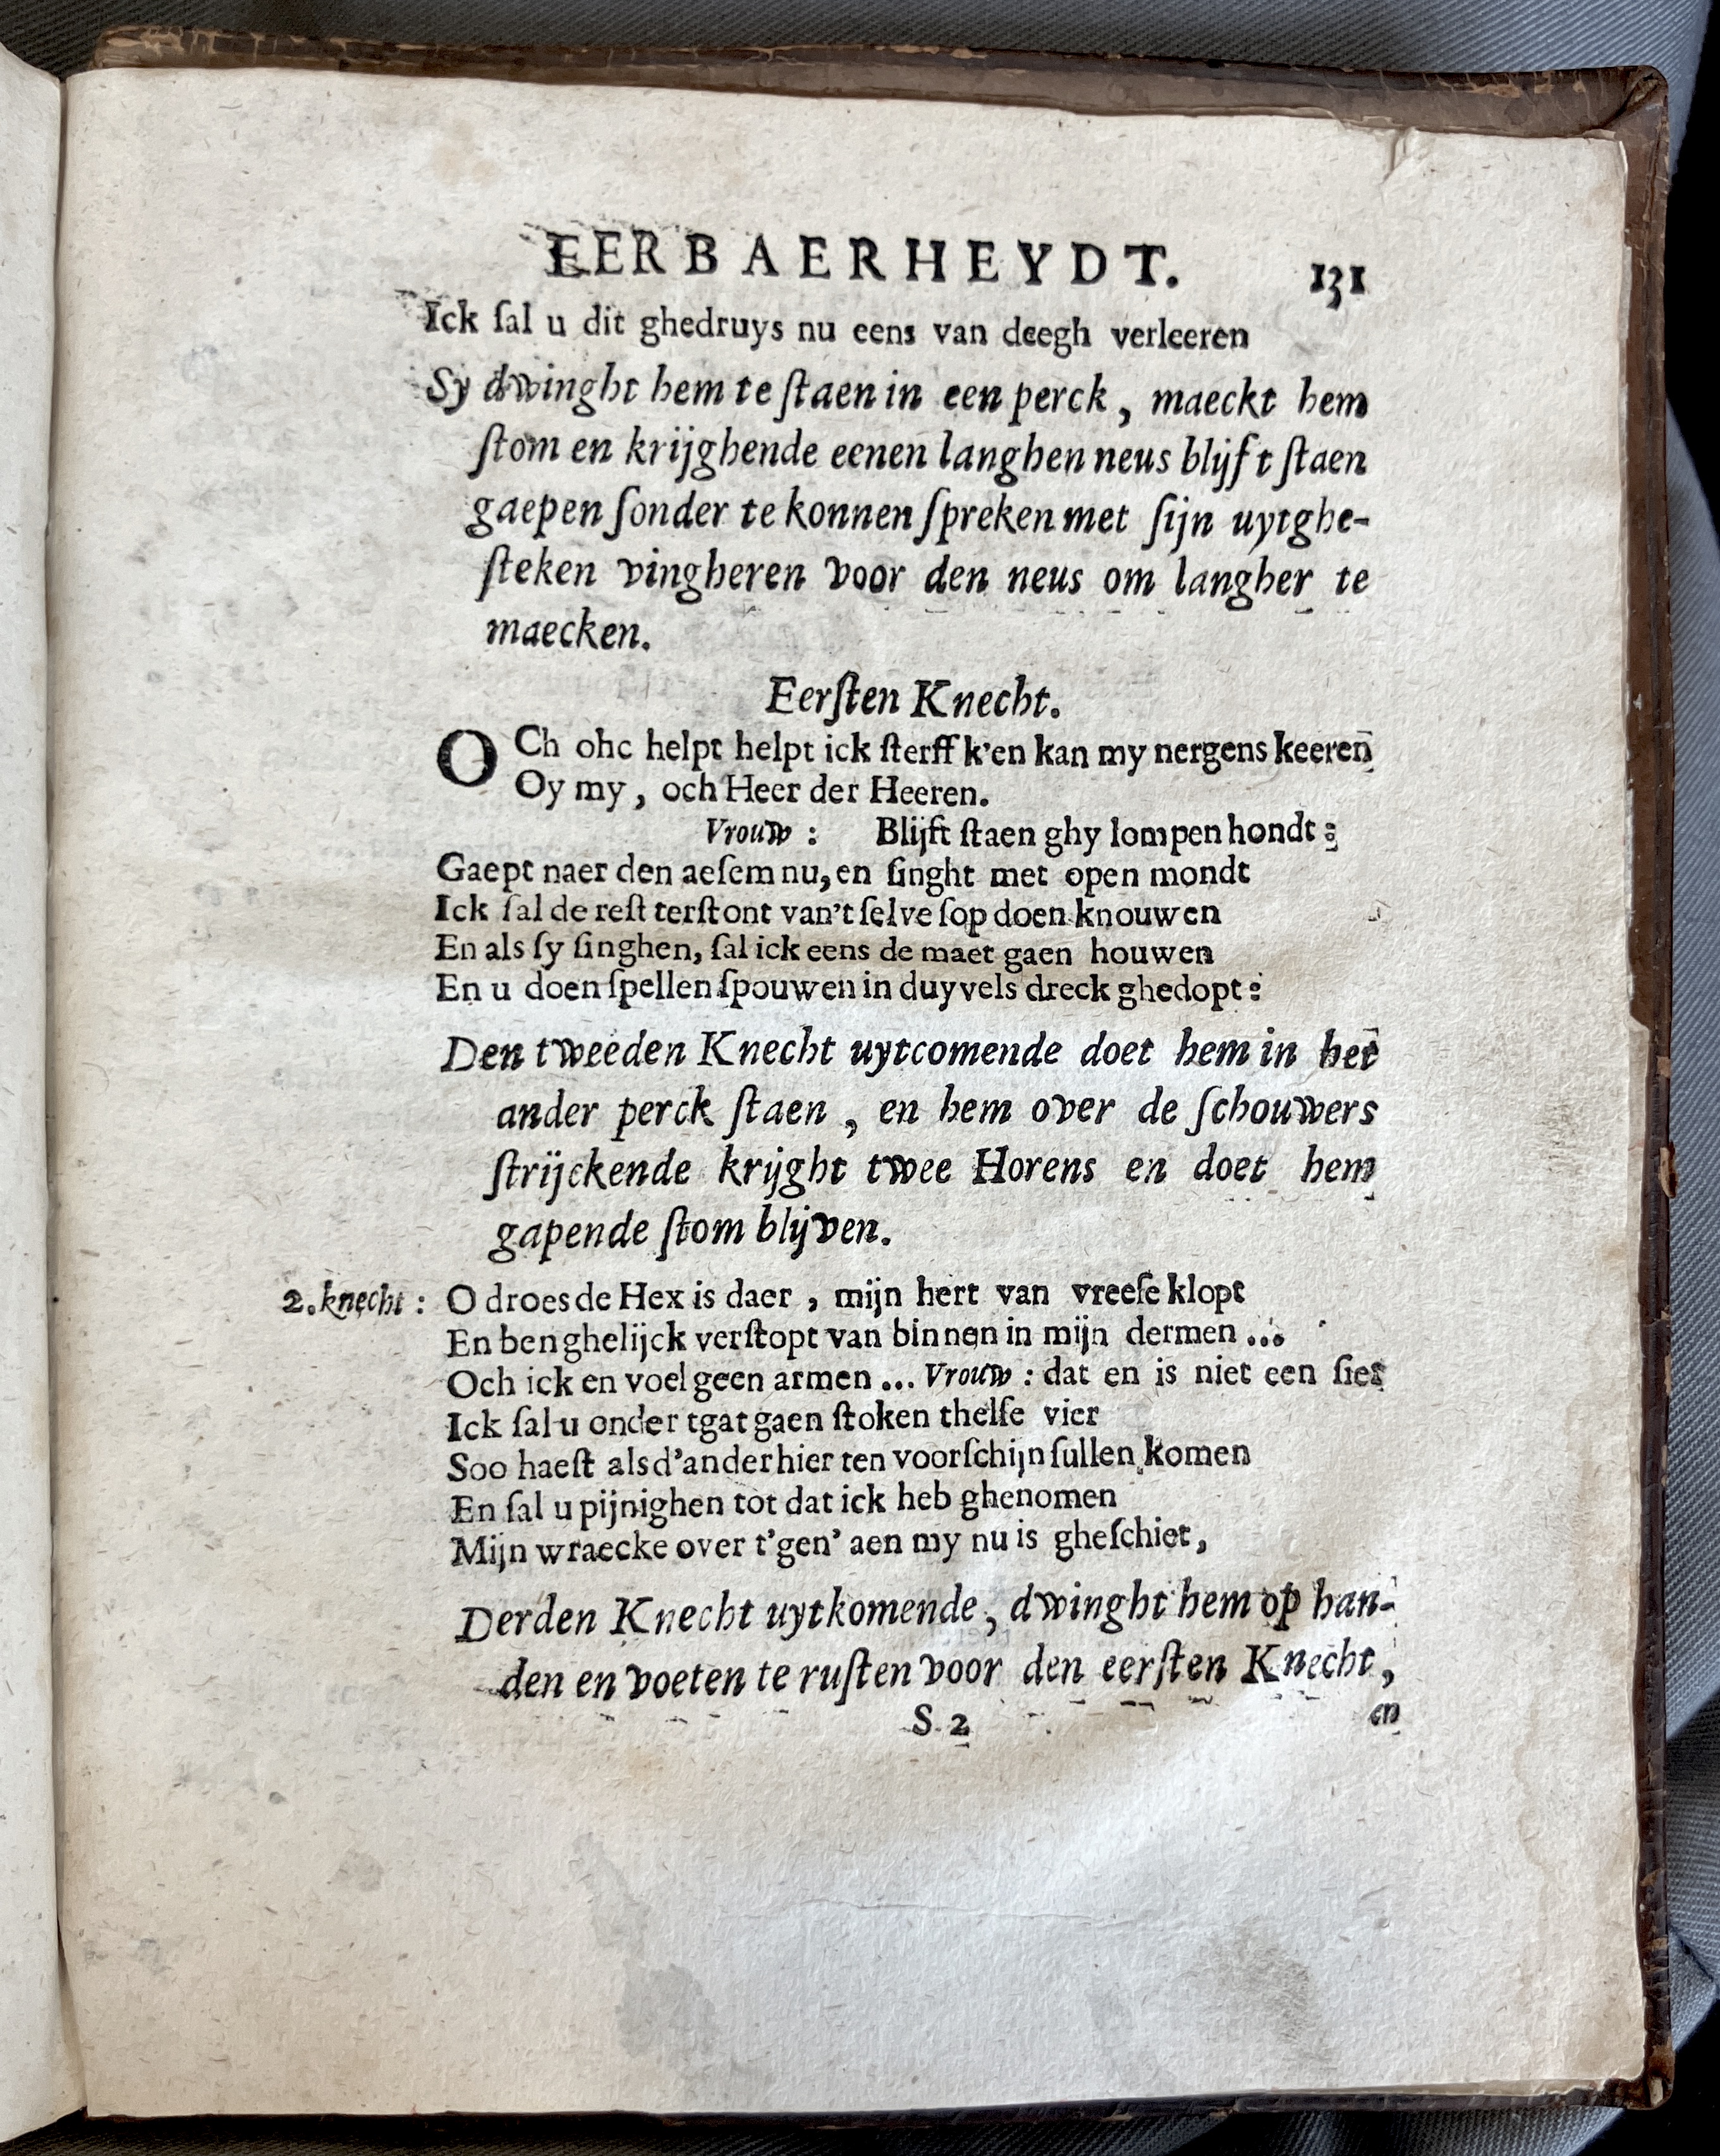 EERBAERHEYDT. 131
Ick ſal u dit ghedruys nu eens van deegh verleeren
Sy dwinght hem te ſtaen in een perck, maeckt hem
ſtom en krijghende eenen langhen neus blijft ſtaen
gaepen ſonder te konnen ſpreken met ſijn uytghe-
ſteken vingheren voor den neus om langher te
maecken.
Eerſten Knecht.
OCh ohc helpt helpt ick ſterff k'en kan my nergens keeren
Oy my, och Heer der Heeren.
Vrouw: Blijft ſtaen ghy lompen hondt:
Gaept naer den aeſem nu, en ſinght met open mondt
Ick ſal de reſt terſtont van't ſelve ſop doen knouwen
En als ſy ſinghen, ſal ick eens de maet gaen houwen
En u doen ſpellen ſpouwen in duyvels dreck ghedopt:
Den tweeden Knecht uytcomende doet hem in het
ander perck ſtaen, en hem over de ſchouwers
ſtrijckende krijght twee Horens en doet hem
gapende ſtom blijven.
2. knecht: O droes de Hex is daer, mijn hert van vreeſe klopt
En ben ghelijck verſtopt van binnen in mijn dermen...
Och ick en voel geen armen... Vrouw: dat en is niet een ſier
Ick ſal u onder tgat gaen ſtoken thelſe vier
Soo haeſt als d'ander hier ten voorſchijn ſullen komen
En ſal u pijnighen tot dat ick heb ghenomen
Mijn wraecke over t'gen' aen my nu is gheſchiet,
Derden Knecht uytkomende, dwinght hem op han-
den en voeten te ruſten voor den eerſten Knecht,
S 2 en